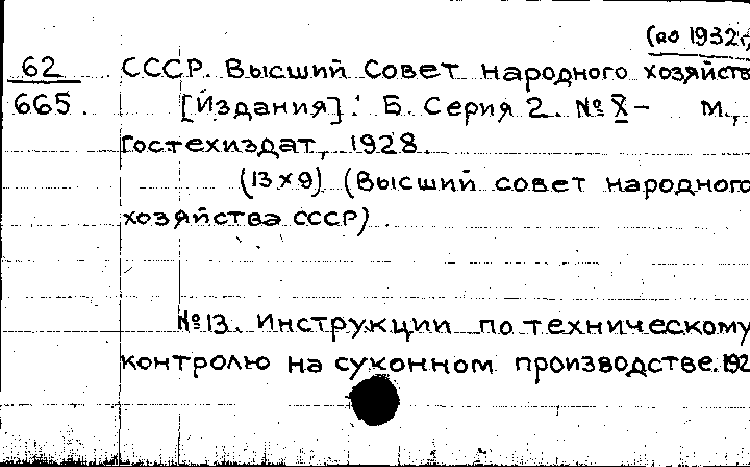 (до 1932 г.
62 СССР. Высший Совет народного хозяйств
665. [Издания]. Б. Серия 2. № X — М.,
Гостехиздат, 1928.
(13×9) (Высший совет народного
хозяйства СССР)
№ 13. Инструкции по техническому
контролю на суконном производстве. 192